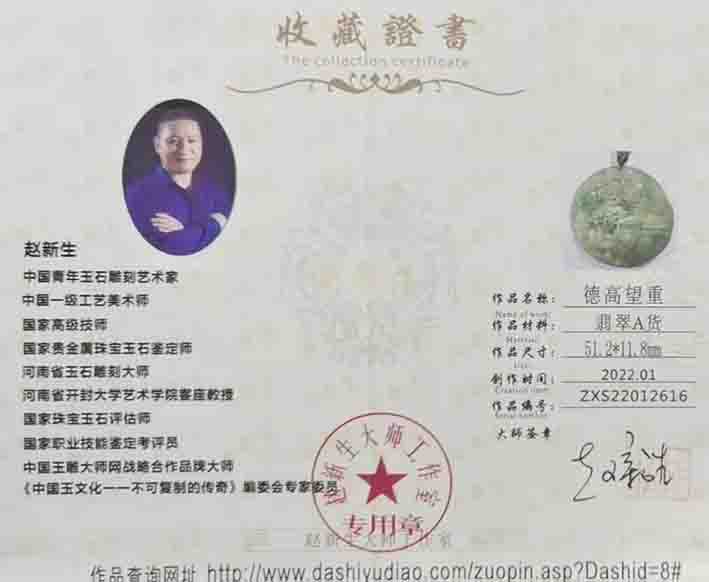 收藏證書
The collection certificate
赵新生
中国青年玉石雕刻艺术家
中国一级工艺美术师
国家高级技师
国家贵金属珠宝玉石鉴定师
河南省玉石雕刻大师
河南省开封大学艺术学院客座教授
国家珠宝玉石评估师
国家职业技能鉴定考评员
中国玉雕大师网战略合作品牌大师
《中国玉文化一一不可复制的传奇》编委会专家委员
作品名称： 德高望重
Name of work
作品材料： 翡翠A货
Material
作品尺寸： 51.2*11.8mm
Size
创作时间： 2022.01
Creation time
作品编号： ZXS22012616
Serial number
大师签章
赵新生
赵新生大师工作室
专用章
赵新生大师工作室
作品查询网址 http://www.dashiyudiao.com/zuopin.asp?Dashid=8#